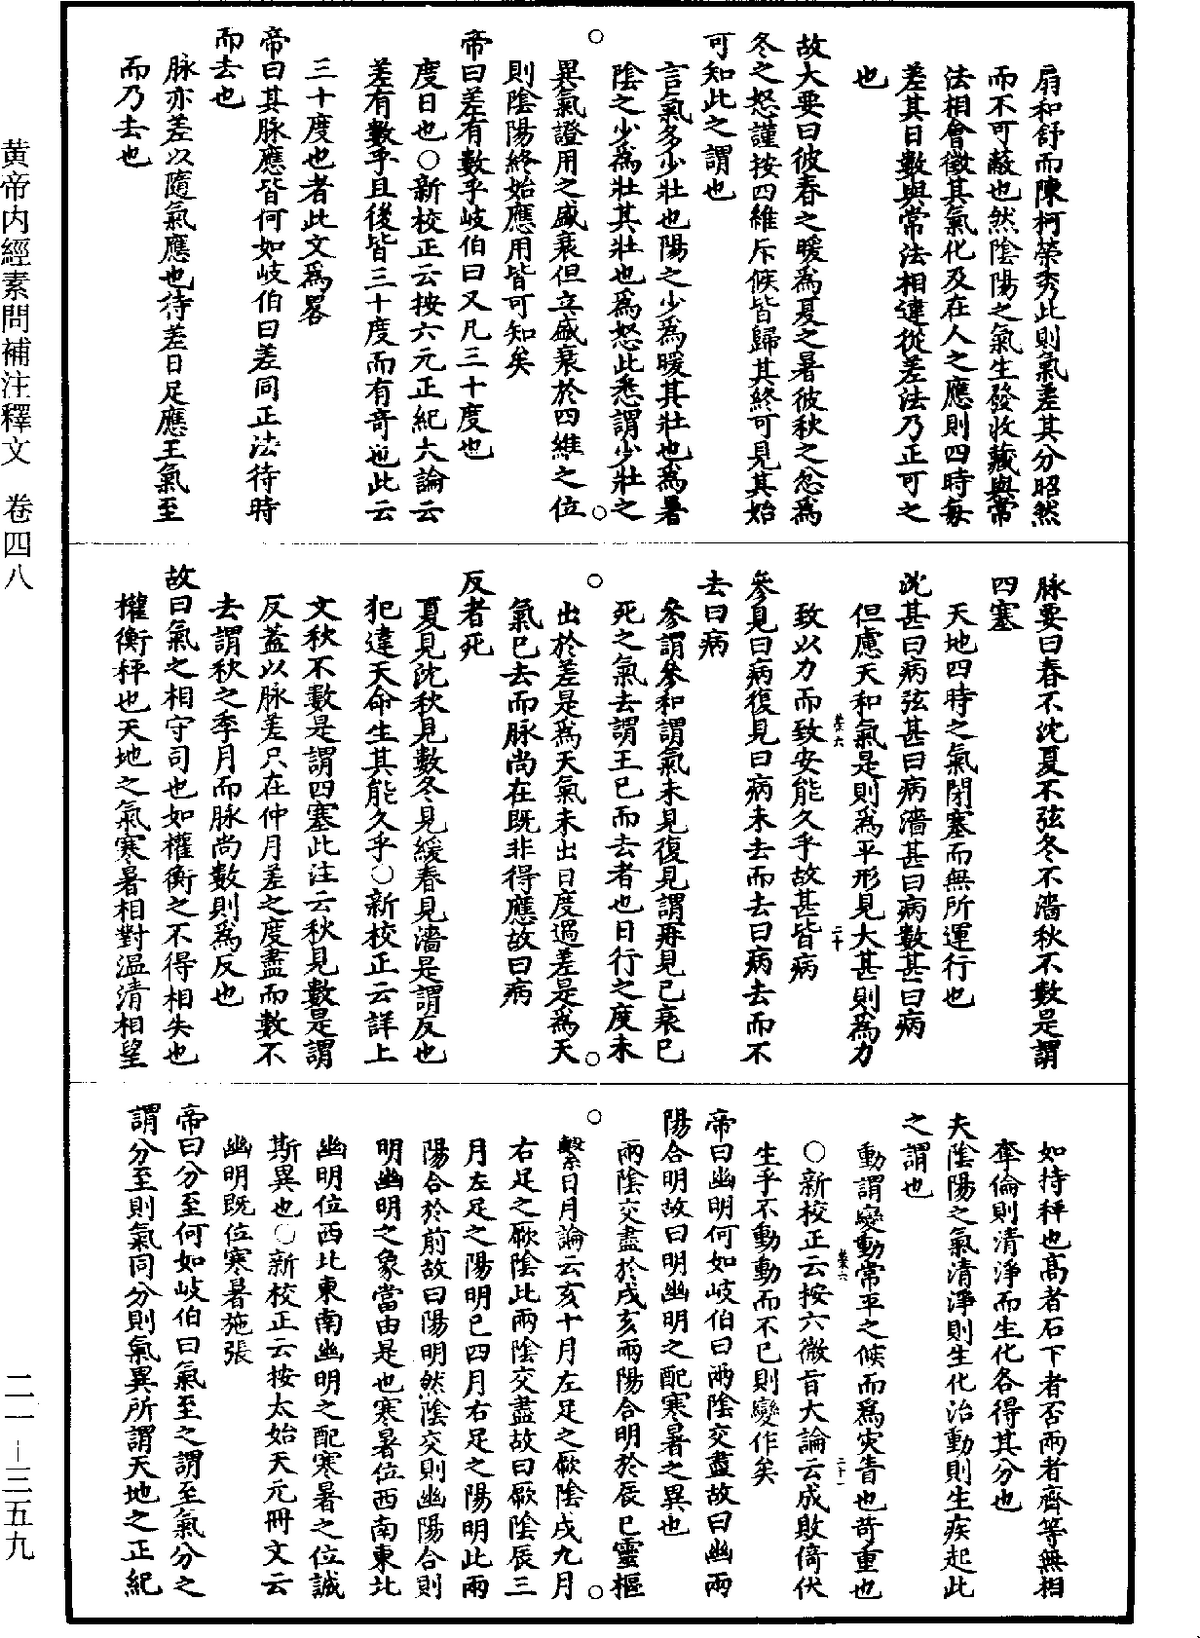 扇和舒而陳柯榮秀此則氣差其分昭然
而不可蔽也然陰陽之氣生發收藏與常
法相會徵其氣化及在人之應則四時每
差其日數與常法相違從差法乃正可之
也
故大要曰彼春之暖為夏之暑彼秋之忿為
冬之怒謹按四維斥候皆歸其終可見其始
可知此之謂也
言氣多少壯也陽之少為暖其壯也為暑
陰之少為壯其壯也為怒此悉謂少壯之
異氣證用之盛衰但立盛衰於四維之位
則陰陽終始應用皆可知矣
帝曰差有數乎岐伯曰又凡三十度也
度日也○新校正云按六元正紀大論云
差有數乎且後皆三十度而有奇也此云
三十度也者此文為畧
帝曰其脉應皆何如岐伯曰差同正法待時
而去也
脉亦差以隨氣應也待差日足應王氣至
而乃去也
脉要曰春不沈夏不弦冬不濇秋不數是謂
四塞
天地四時之氣閉塞而無所運行也
沈甚曰病弦甚曰病濇甚曰病數甚曰病
但慮天和氣是則為平形見大甚則為力
致以力而致安能久乎故甚皆病
參見曰病復見曰病未去而去曰病去而不
去曰病
參謂參和謂氣未見復見謂再見已衰已
死之氣去謂王已而去者也日行之度未
出於差是為天氣未出日度過差是為天
氣已去而脉尚在既非得應故曰病
反者死
夏見沈秋見數冬見緩春見濇是謂反也
犯違天命生其能久乎○新校正云詳上
文秋不數是謂四塞此注云秋見數是謂
反蓋以脉差只在仲月差之度盡而數不
去謂秋之季月而脉尚數則為反也
故曰氣之相守司也如權衡之不得相失也
權衡秤也天地之氣寒暑相對温清相望
如持秤也高者石下者否兩者齊等無相
奪倫則清淨而生化各得其分也
夫陰陽之氣清淨則生化治動則生疾起此
之謂也
動謂變動常平之候而為灾眚也苛重也
○新校正云按六微旨大論云成敗倚伏
生乎不動動而不已則變作矣
帝曰幽明何如岐伯曰兩陰交盡故曰幽兩
陽合明故曰明幽明之配寒暑之異也
兩陰交盡於戌亥兩陽合明於辰巳靈樞
繫日月論云亥十月左足之厥陰戌九月
右足之厥陰此兩陰交盡故曰厥陰辰三
月左足之陽明巳四月右足之陽明此兩
陽合於前故曰陽明然陰交則幽陽合則
明幽明之象當由是也寒暑位西南東北
幽明位西北東南幽明之配寒暑之位誠
斯異也○新校正云按太始天元冊文云
幽明既位寒暑施張
帝曰分至何如岐伯曰氣至之謂至氣分之
謂分至則氣同分則氣異所謂天地之正紀
黄帝内經素問補注釋文 卷四八
二一—三五九